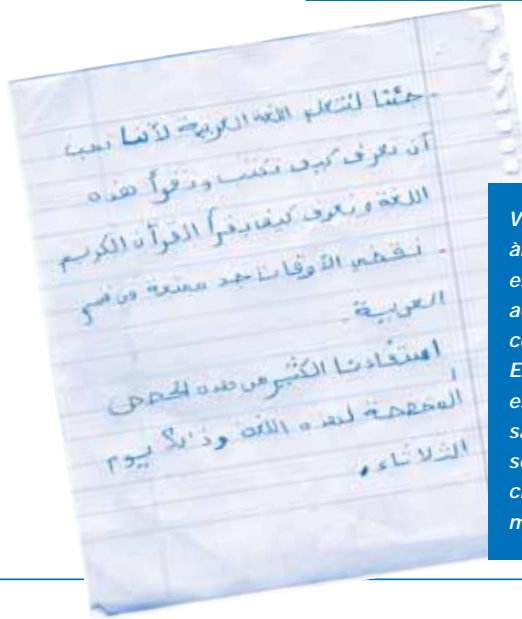 - جئنا لنتعلم اللغة العربية لأننا نحب
أن نعرف كيف نكتب ونقرأ هذه
اللغة ونعرف كيف يقرأ القرآن الكريم
- نقضي الأوقات جد ممتعة في قسم
العربية.
استفادنا الكثير من هده الحصص
المخصصة لهده اللغة وذلك يوم
الثلاثاء.
V
à
e
a
c
E
e
sa
s
c
m